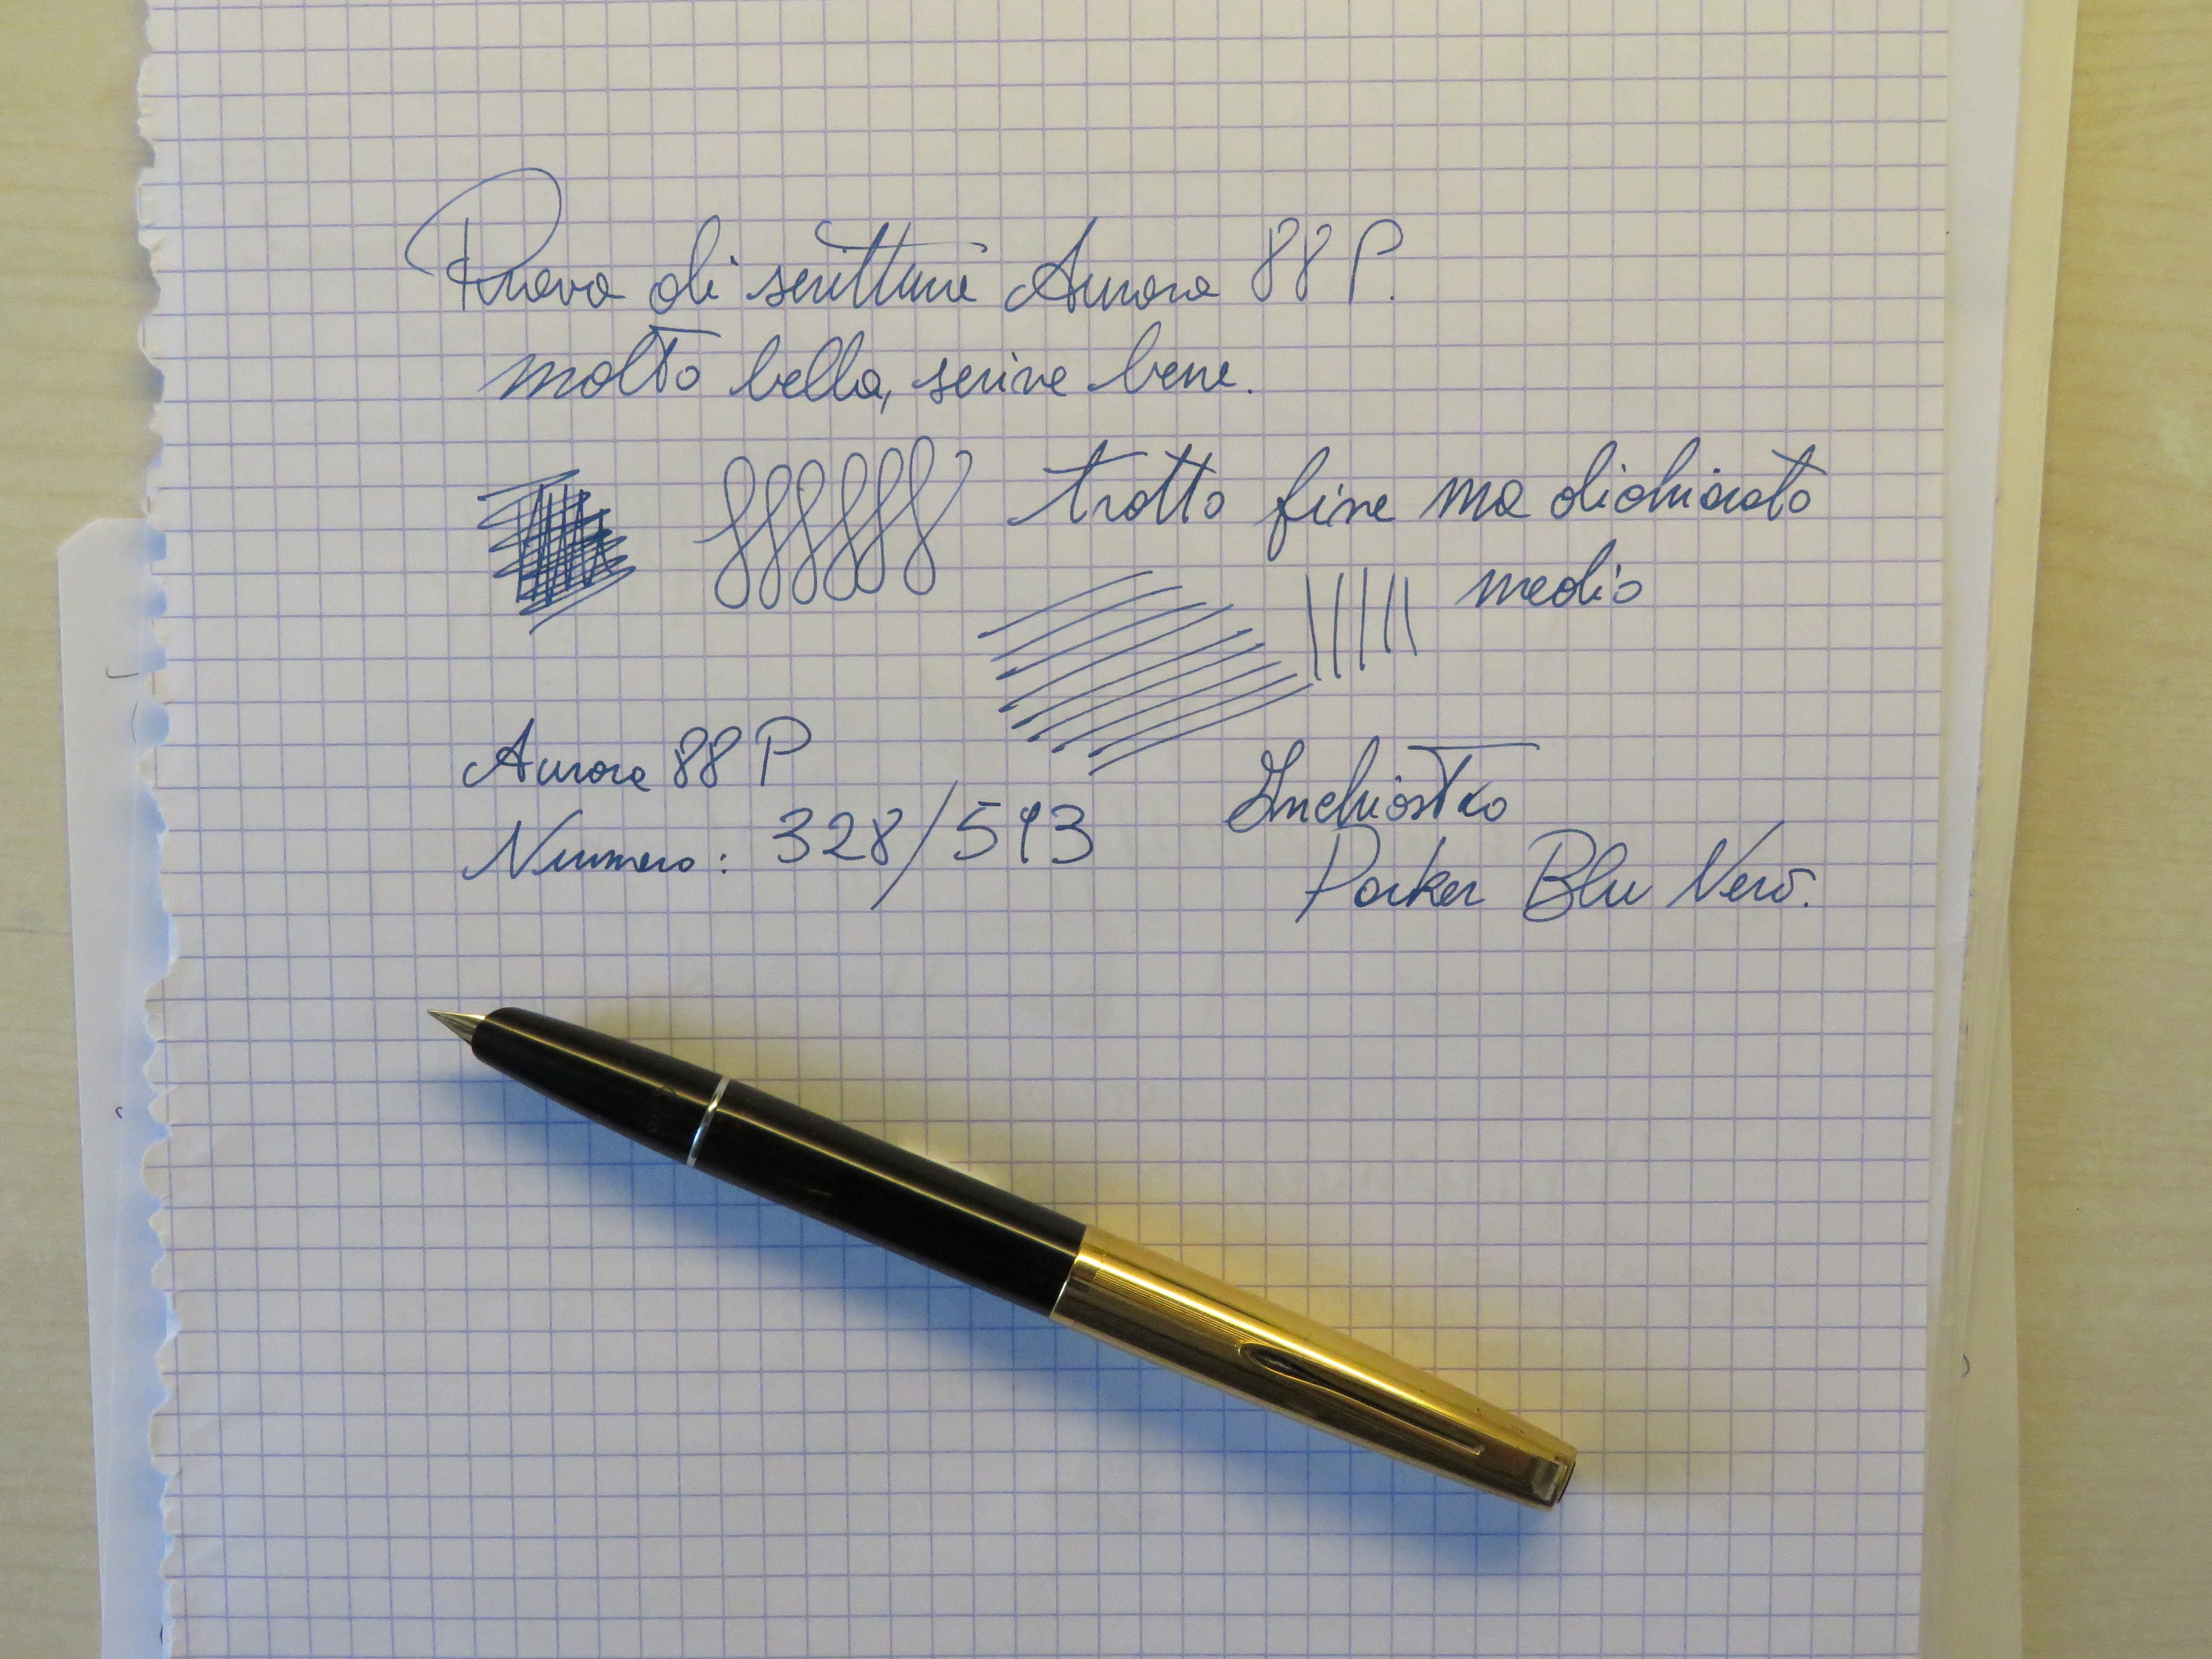 Prova di scrittura Aurora 88 P.
molto bella, scrive bene.
tratto fine ma dichiarato
medio
Aurora 88 P
Numero: 328/513
Inchiostro
Parker Blu Nero.